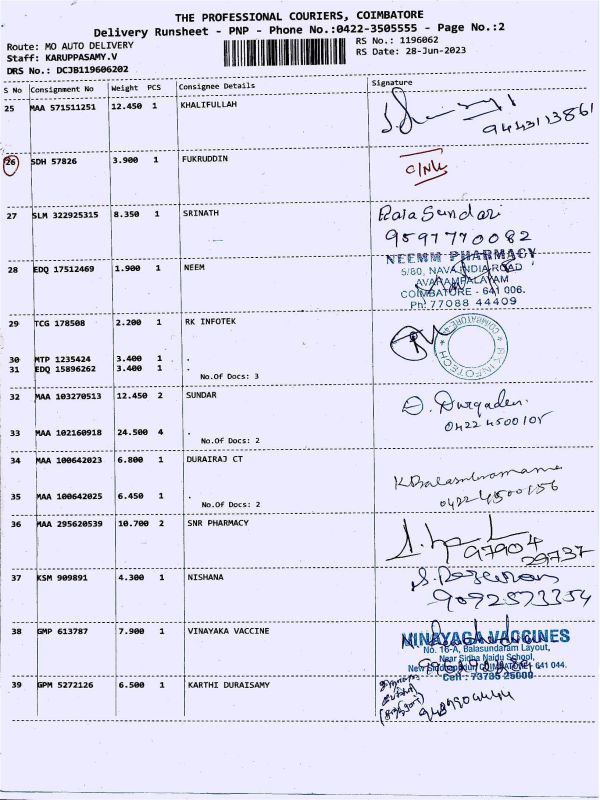 THE PROFESSIONAL COURIERS, COIMBATORE
Delivery Runsheet - PNP - Phone No.:0422-3505555 - Page No.:2
Route: MO AUTO DELIVERY
RS No.: 1196062
Staff: KARUPPASAMY.V
RS Date: 28-Jun-2023
DRS No.: DCJB119606202
S No Consignment No Weight PCS Consignee Details Signature
25 MAA 571511251 12.450 1 KHALIFULLAH
9443113861
26 SDH 57826 3.900 1 FUKRUDDIN
27 SLM 322925315 8.350 1 SRINATH
9597770082
28 EDQ 17512469 1.900 1 NEEM
NEEMM PHARMACY
5/80, NAVA INDIA ROAD
AVARAMPALAYAM
COIMBATORE - 641 006.
Ph: 77088 44409
29 TCG 178508 2.200 1 RK INFOTEK
30 MTP 1235424 3.400 1 .
31 EDQ 15896262 3.400 1 .
No.Of Docs: 3
32 MAA 103270513 12.450 2 SUNDAR
0422 4500105
33 MAA 102160918 24.500 4 .
No.Of Docs: 2
34 MAA 100642023 6.800 1 DURAIRAJ CT
K Balasubramani
0422 4500156
35 MAA 100642025 6.450 1 .
No.Of Docs: 2
36 MAA 295620539 10.700 2 SNR PHARMACY
97904
29737
37 KSM 909891 4.300 1 NISHANA
9092573354
38 GMP 613787 7.900 1 VINAYAKA VACCINE
VINAYAGA VACCINES
No. 16-A, Balasundaram Layout,
Near Sidha Naidu School,
COIMBATORE - 641 044.
Cell : 73735 25000
39 GPM 5272126 6.500 1 KARTHI DURAISAMY